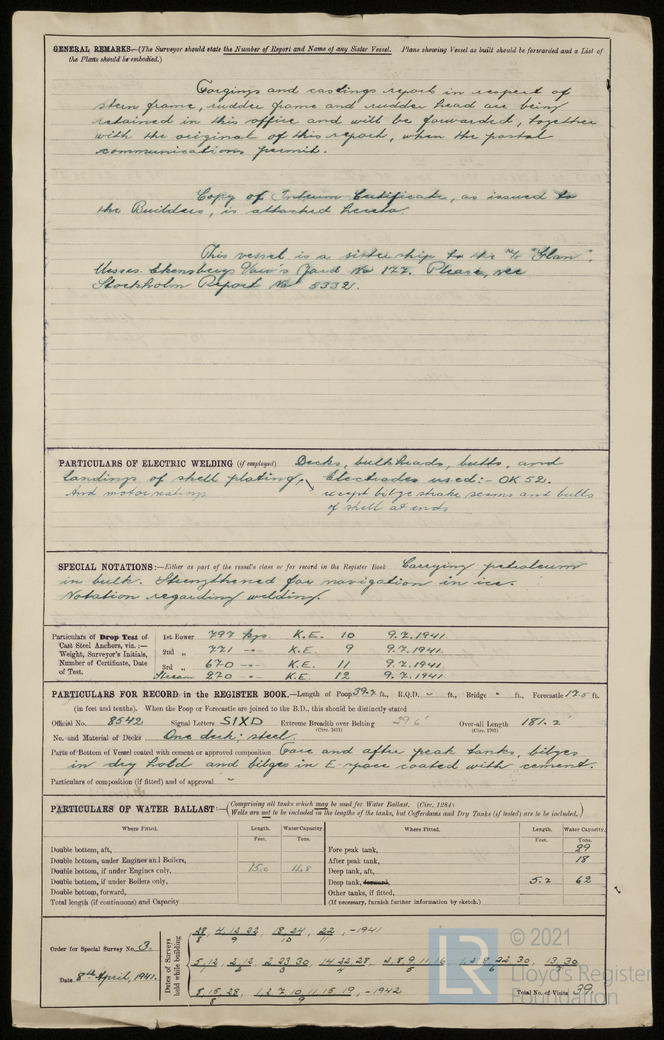 GENERAL REMARKS.—(The Surveyor should state the Number of Report and Name of any Sister Vessel. Plans showing Vessel as built should be forwarded and a List of
the Plans should be embodied.)
Forgings and castings report in respect of
stern frame, rudder frame and rudder head are being
retained in this office and will be forwarded, together
with the original of this report, when the postal
communications permit.
Copy of Interim Certificate, as issued to
the Builders, is attached hereto.
This vessel is a sister ship to the m/t "Glan".
Messrs. Ekensbergs Varv's Yard No 177. Please, see
Stockholm Report No 5332.
PARTICULARS OF ELECTRIC WELDING (if employed) Decks, bulkheads, butts, and
landings of shell plating, Electrodes used:- OK 52.
And motor seatings except bilge strake seams and butts
of shell at ends
SPECIAL NOTATIONS:—Either as part of the vessel's class or for record in the Register Book Carrying petroleum
in bulk. Strengthened for navigation in ice.
Notation regarding welding.
Particulars of Drop Test of 1st Bower 797 kgs. K.E. 10 9.7.1941.
Cast Steel Anchors, viz.:—
Weight, Surveyor's Initials, 2nd „ 771 -"- K.E. 9 9.7.1941.
Number of Certificate, Date 3rd „ 670 -"- K.E. 11 9.7.1941.
of Test. Stream 270 -"- K.E. 12 9.7.1941.
PARTICULARS FOR RECORD in the REGISTER BOOK.—Length of Poop 39.7 ft., R.Q.D. - ft., Bridge - ft., Forecastle 17.5 ft.
(in feet and tenths). When the Poop or Forecastle are joined to the B.D., this should be distinctly stated
Official No. 8542 Signal Letters SIXD Extreme Breadth over Belting 29.6' Over-all Length 181.2'
(Circ. 1611) (Circ. 1703)
No. and Material of Decks One deck; steel.
Parts of Bottom of Vessel coated with cement or approved composition Fore and after peak tanks, bilges
in dry hold and bilges in E-space coated with cement.
Particulars of composition (if fitted) and of approval -"-
PARTICULARS OF WATER BALLAST:—(Comprising all tanks which may be used for Water Ballast. (Circ. 1284)
Wells are not to be included in the lengths of the tanks, but Cofferdams and Dry Tanks (if tested) are to be included.)
Where Fitted. Length. Water Capacity. Where Fitted. Length. Water Capacity.
Feet. Tons. Feet. Tons.
Double bottom, aft, Fore peak tank, 29
Double bottom, under Engines and Boilers, After peak tank, 18
Double bottom, if under Engines only, 15.0 11.8 Deep tank, aft,
Double bottom, if under Boilers only, Deep tank, forward, 5.2 62
Double bottom, forward, Other tanks, if fitted,
Total length (if continuous) and Capacity (If necessary, furnish further information by sketch.)
Order for Special Survey No. 3.
Date 8th April, 1941.
Dates of Surveys
held while building
28, 4, 12, 22, 18, 24, 22, -1941
8 9 10 11
5, 12, 2, 12, 2, 23, 30, 14, 22, 28, 2, 8, 9, 11, 16, 1, 2, 9, 22, 30, 13, 30
4 5 6
8, 15, 28, 1, 2, 7, 10, 11, 15, 19, -1942
8 9
Total No. of Visits 39.
© 2021
LR Lloyd's Register
Foundation